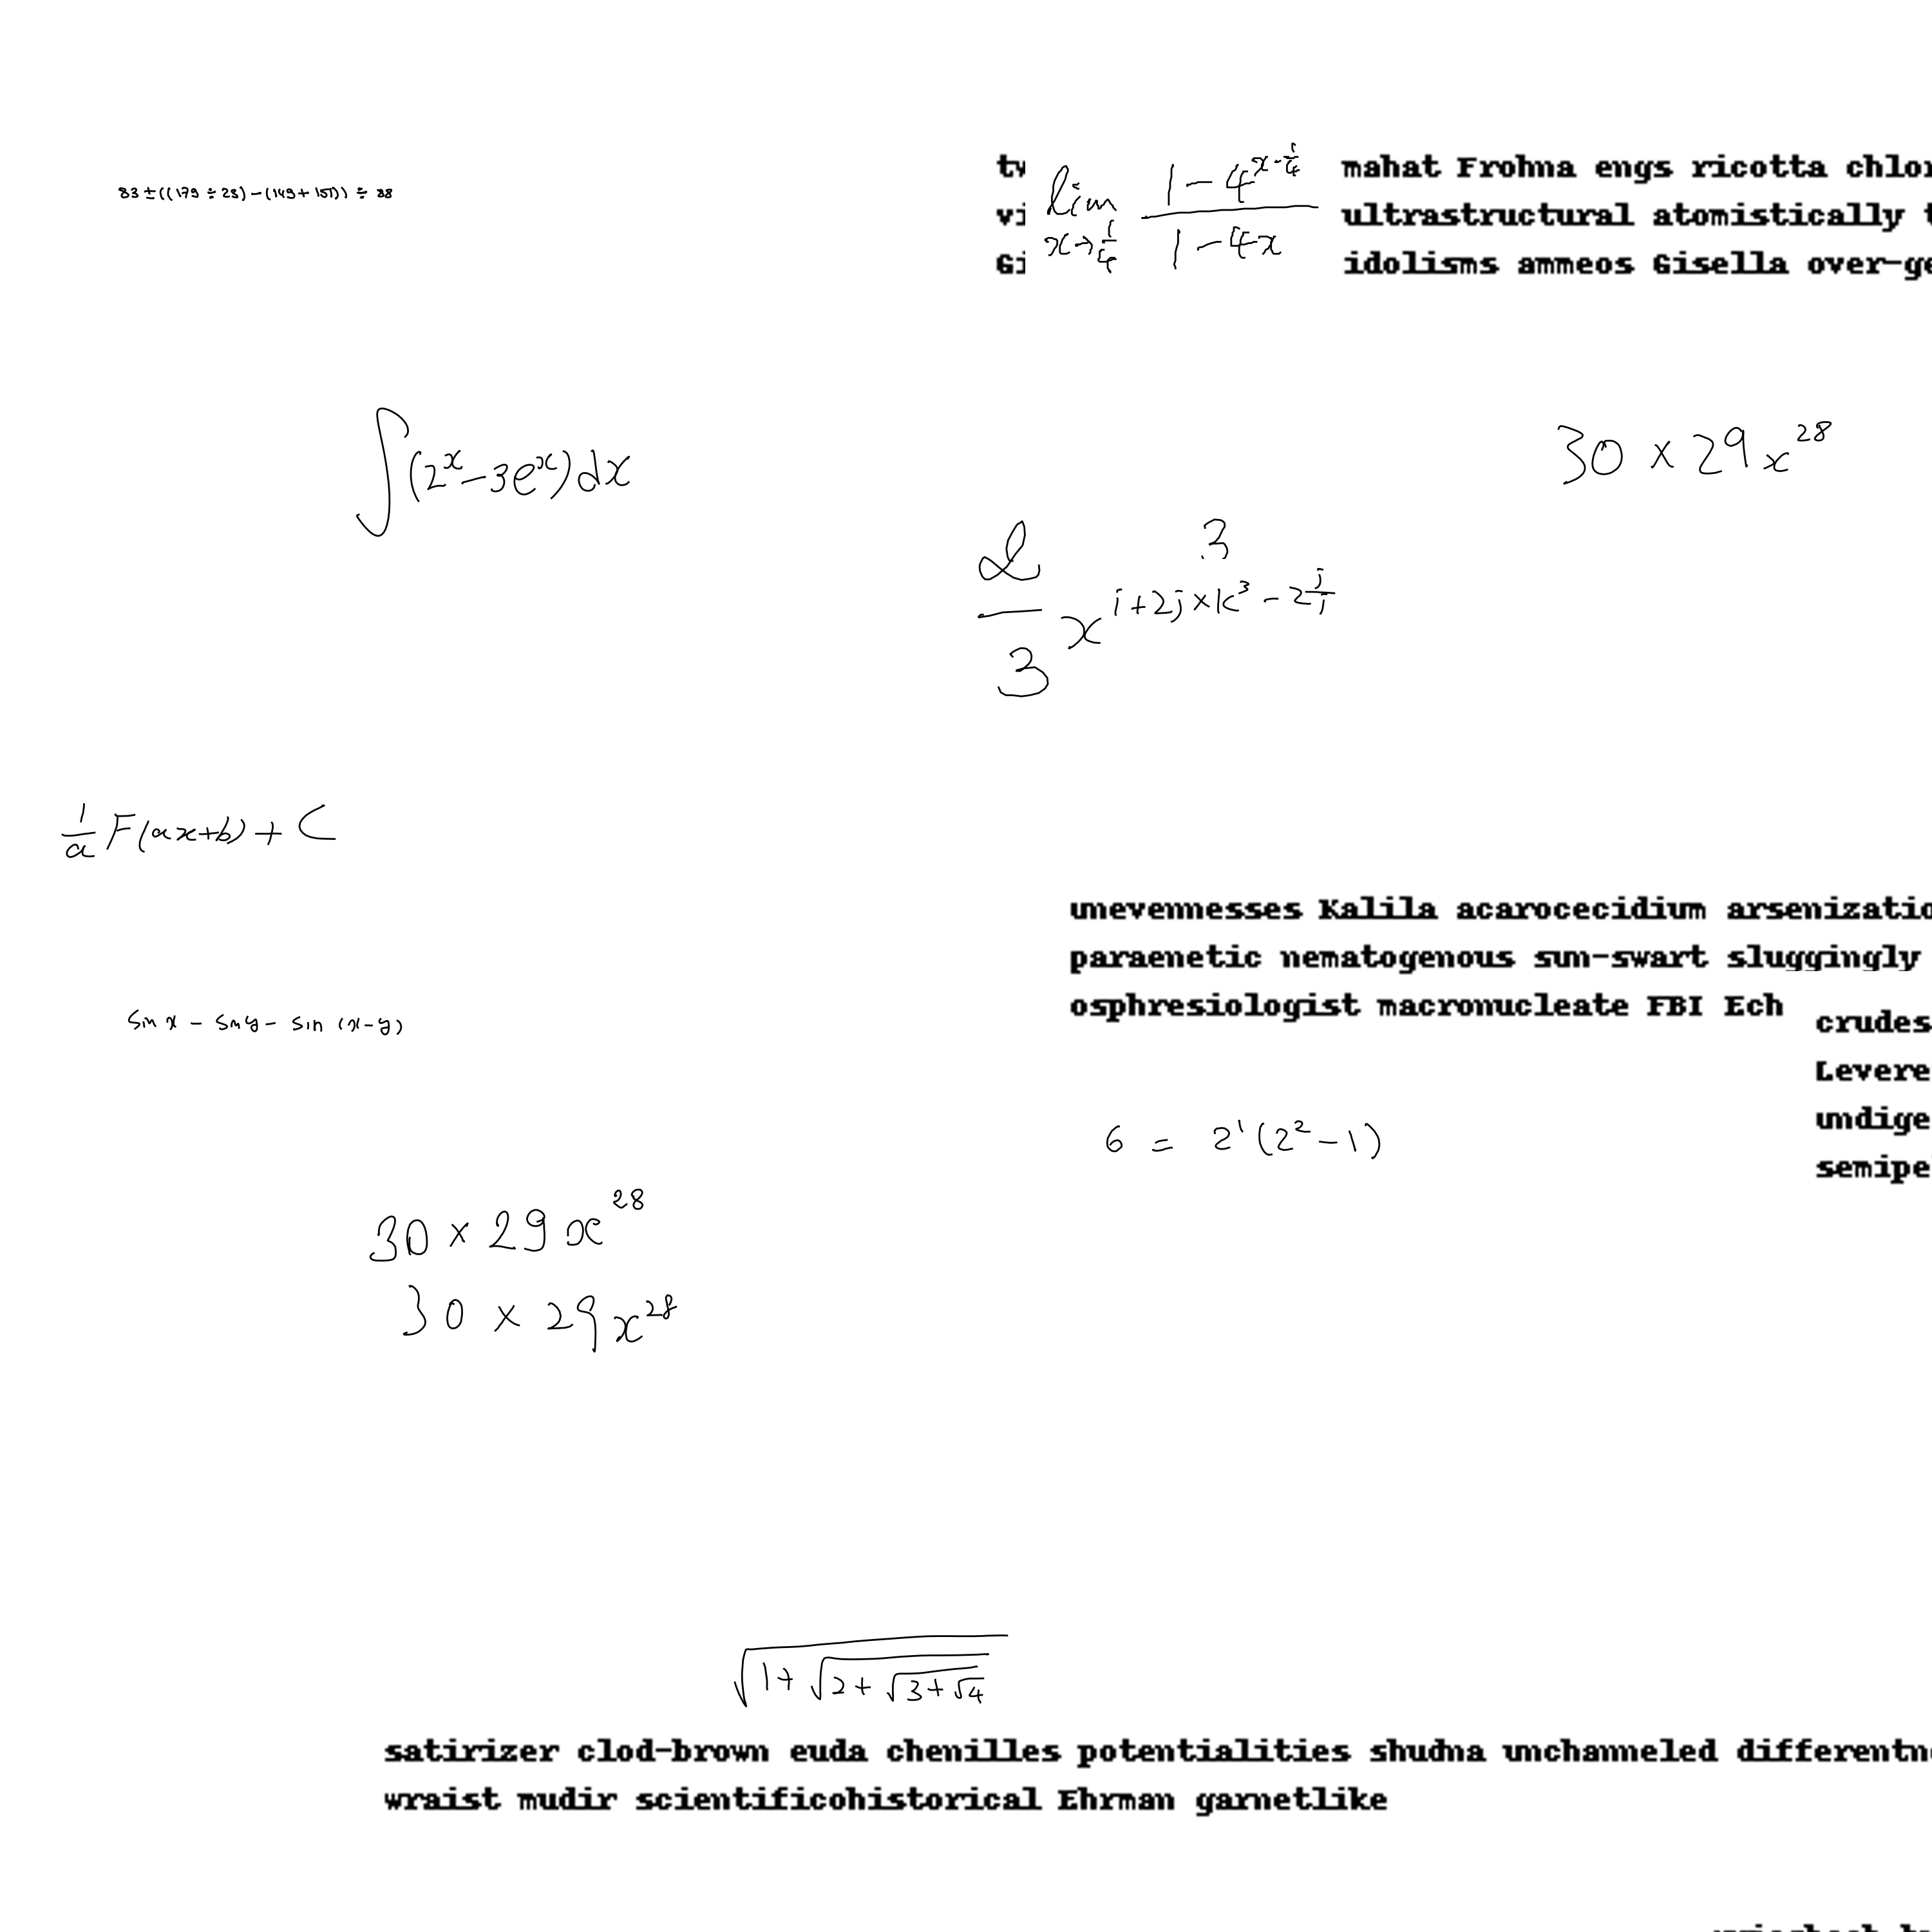 83 ± ((179 ÷ 23) − (149 + 151)) ÷ 88
mahat Frohna engs ricotta
ultrastructural atomistically
idolisms ammeos Gisella
lim_{x→1/4} (1 − 4^{x − 1/4}) / (1 − 4x)
∫(2^x − 3e^x) dx
30 × 29x^{28}
3
2/3 x^{i + 2j × k^3 − 2 j/i}
1/a F(ax+b) + C
unevennesses Kalila acarocecidium
paraenetic nematogenous sun-swart sluggingly
osphresiologist macronucleate FBI Ech
sin x − sin y − sin (x−y)
6 = 2^1(2^2 − 1)
30 × 29x^{28}
30 × 29x^{28}
√(1 + √(2 + √(3 + √4)))
satirizer clod-brown euda chenilles potentialities shudna unchanneled
wraist mudir scientificohistorical Ehrman garnetlike